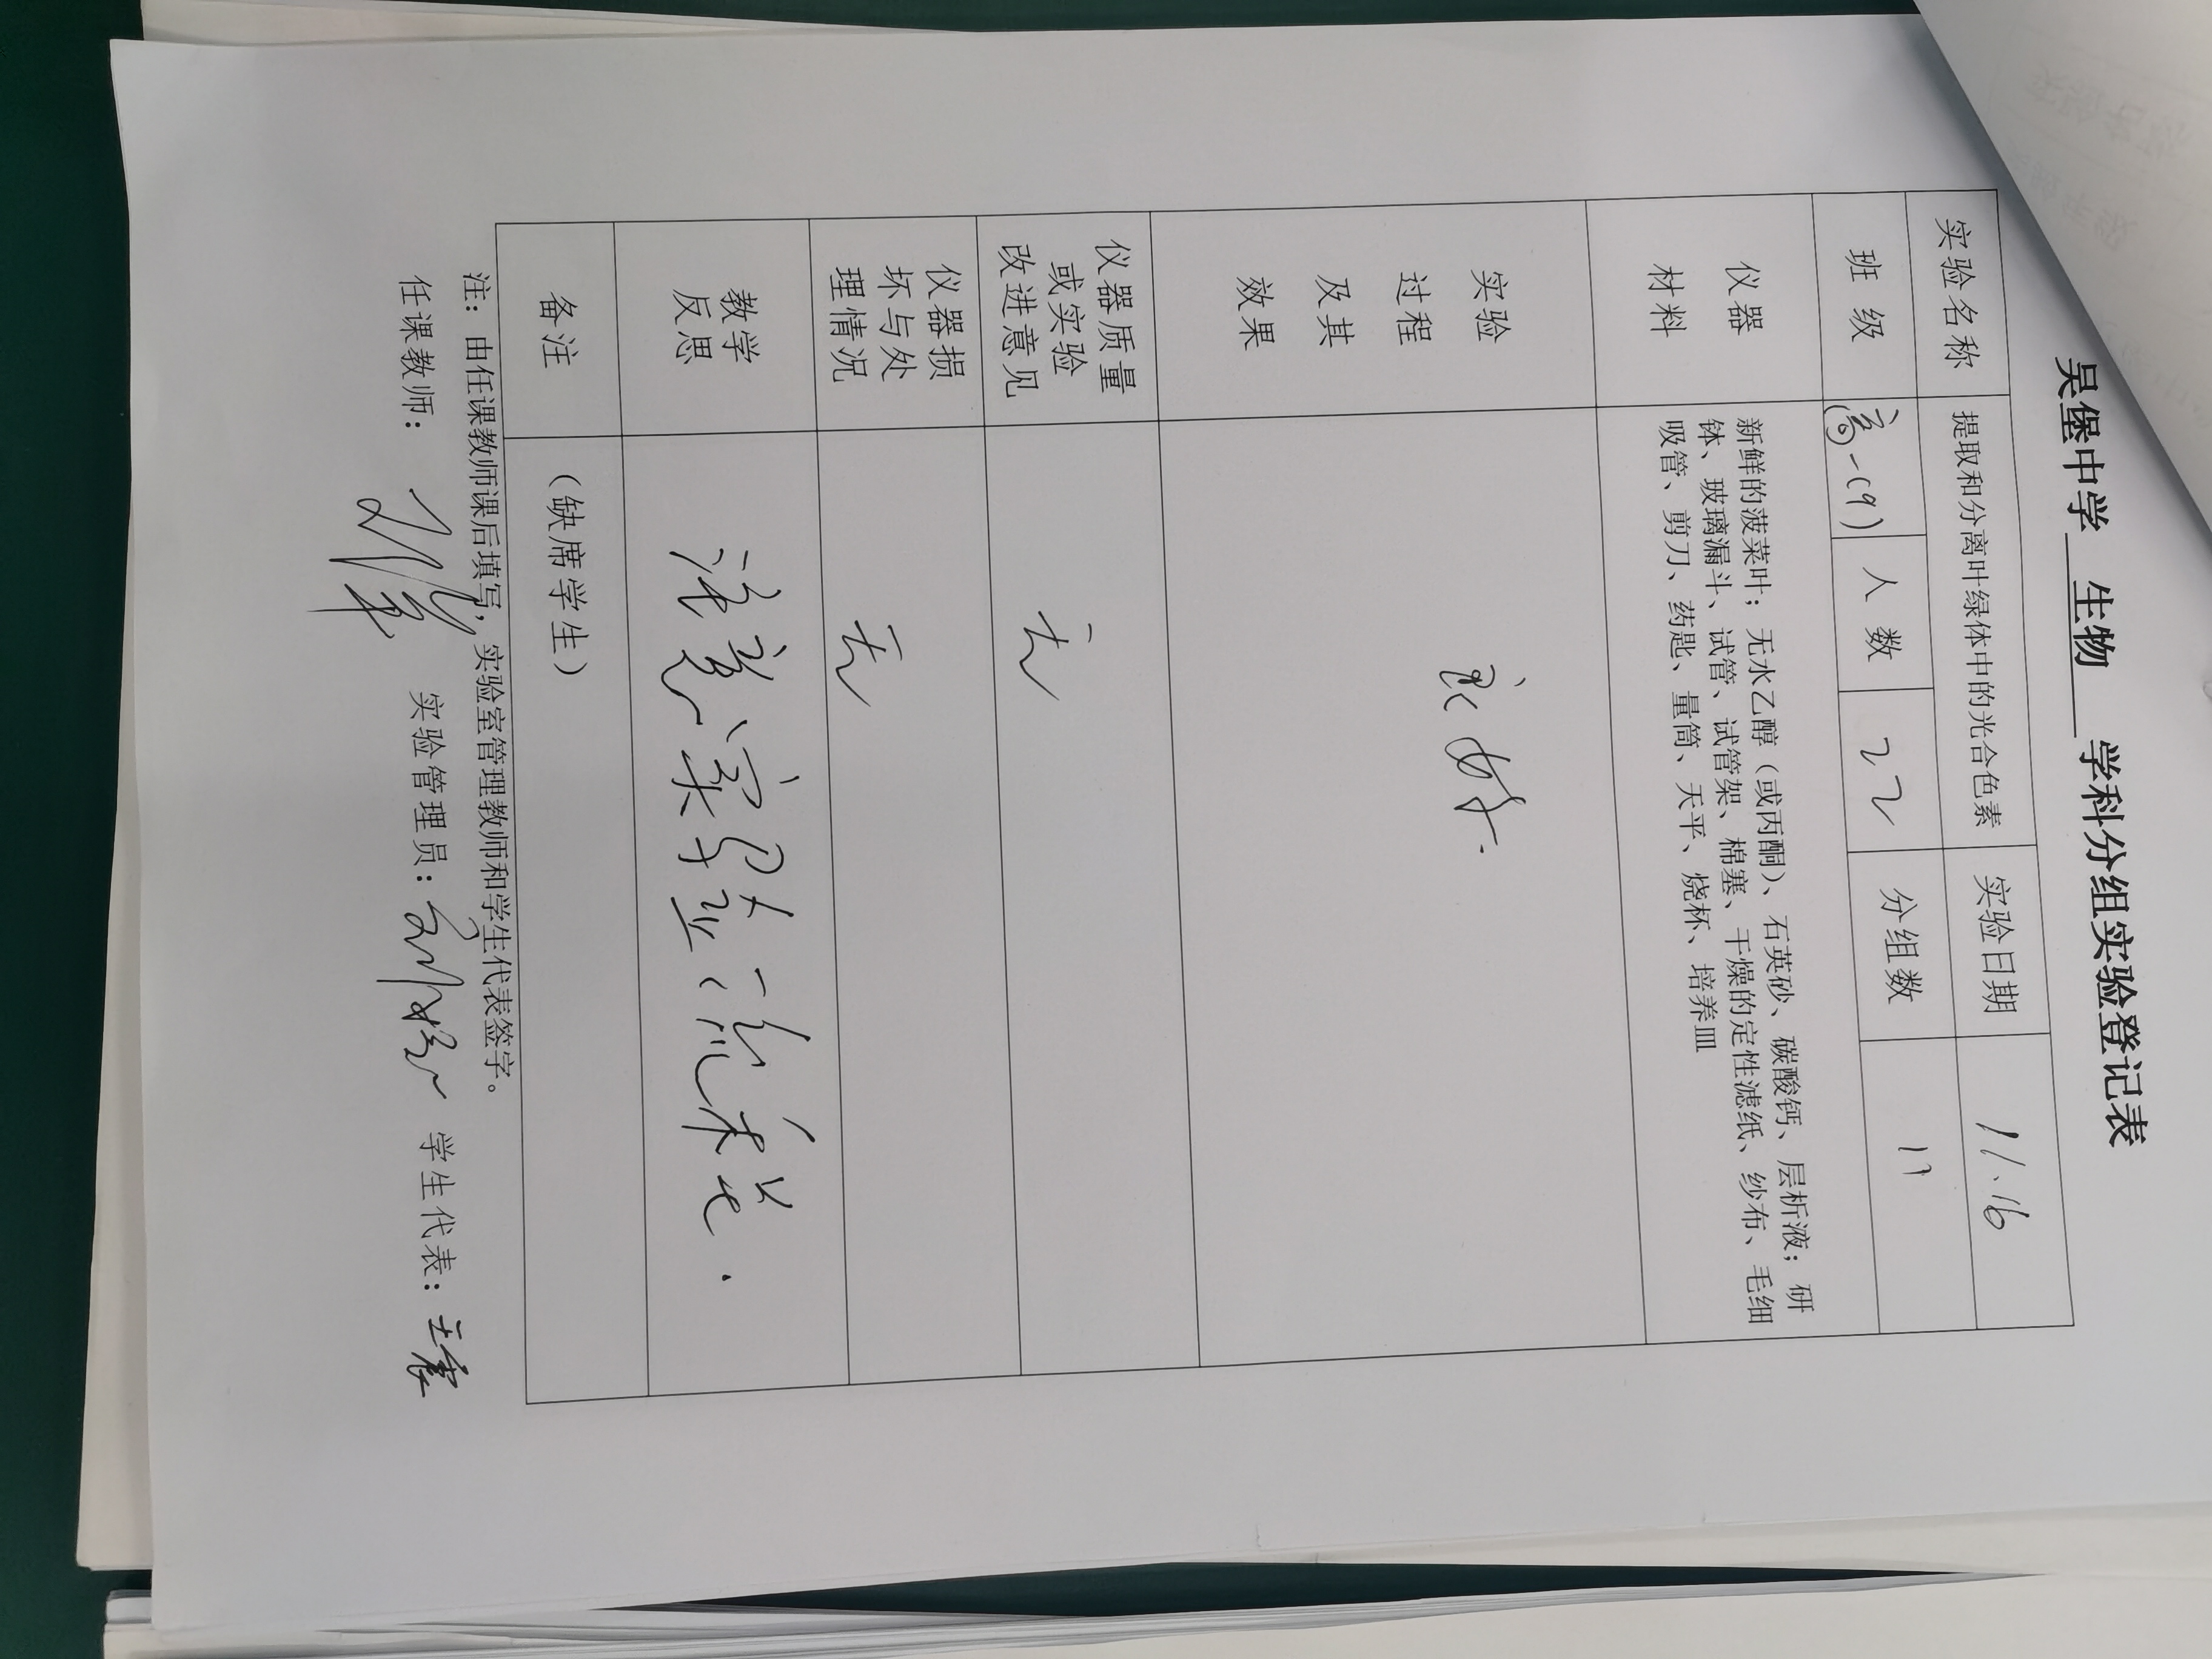 吴堡中学 生物 学科分组实验登记表
实验名称 提取和分离叶绿体中的光合色素 实验日期 11.16
班级 高一(9) 人数 22 分组数 11
仪器
材料
新鲜的菠菜叶；无水乙醇（或丙酮）、石英砂、碳酸钙、层析液；研
钵、玻璃漏斗、试管、试管架、棉塞、干燥的定性滤纸、纱布、毛细
吸管、剪刀、药匙、量筒、天平、烧杯、培养皿
实验
过程
及其
效果
良好.
仪器质量
或实验
改进意见
无
仪器损
坏与处
理情况
无
教学
反思
注意实验
备注 （缺席学生）
注：由任课教师课后填写，实验室管理教师和学生代表签字。
任课教师： 实验管理员： 学生代表：